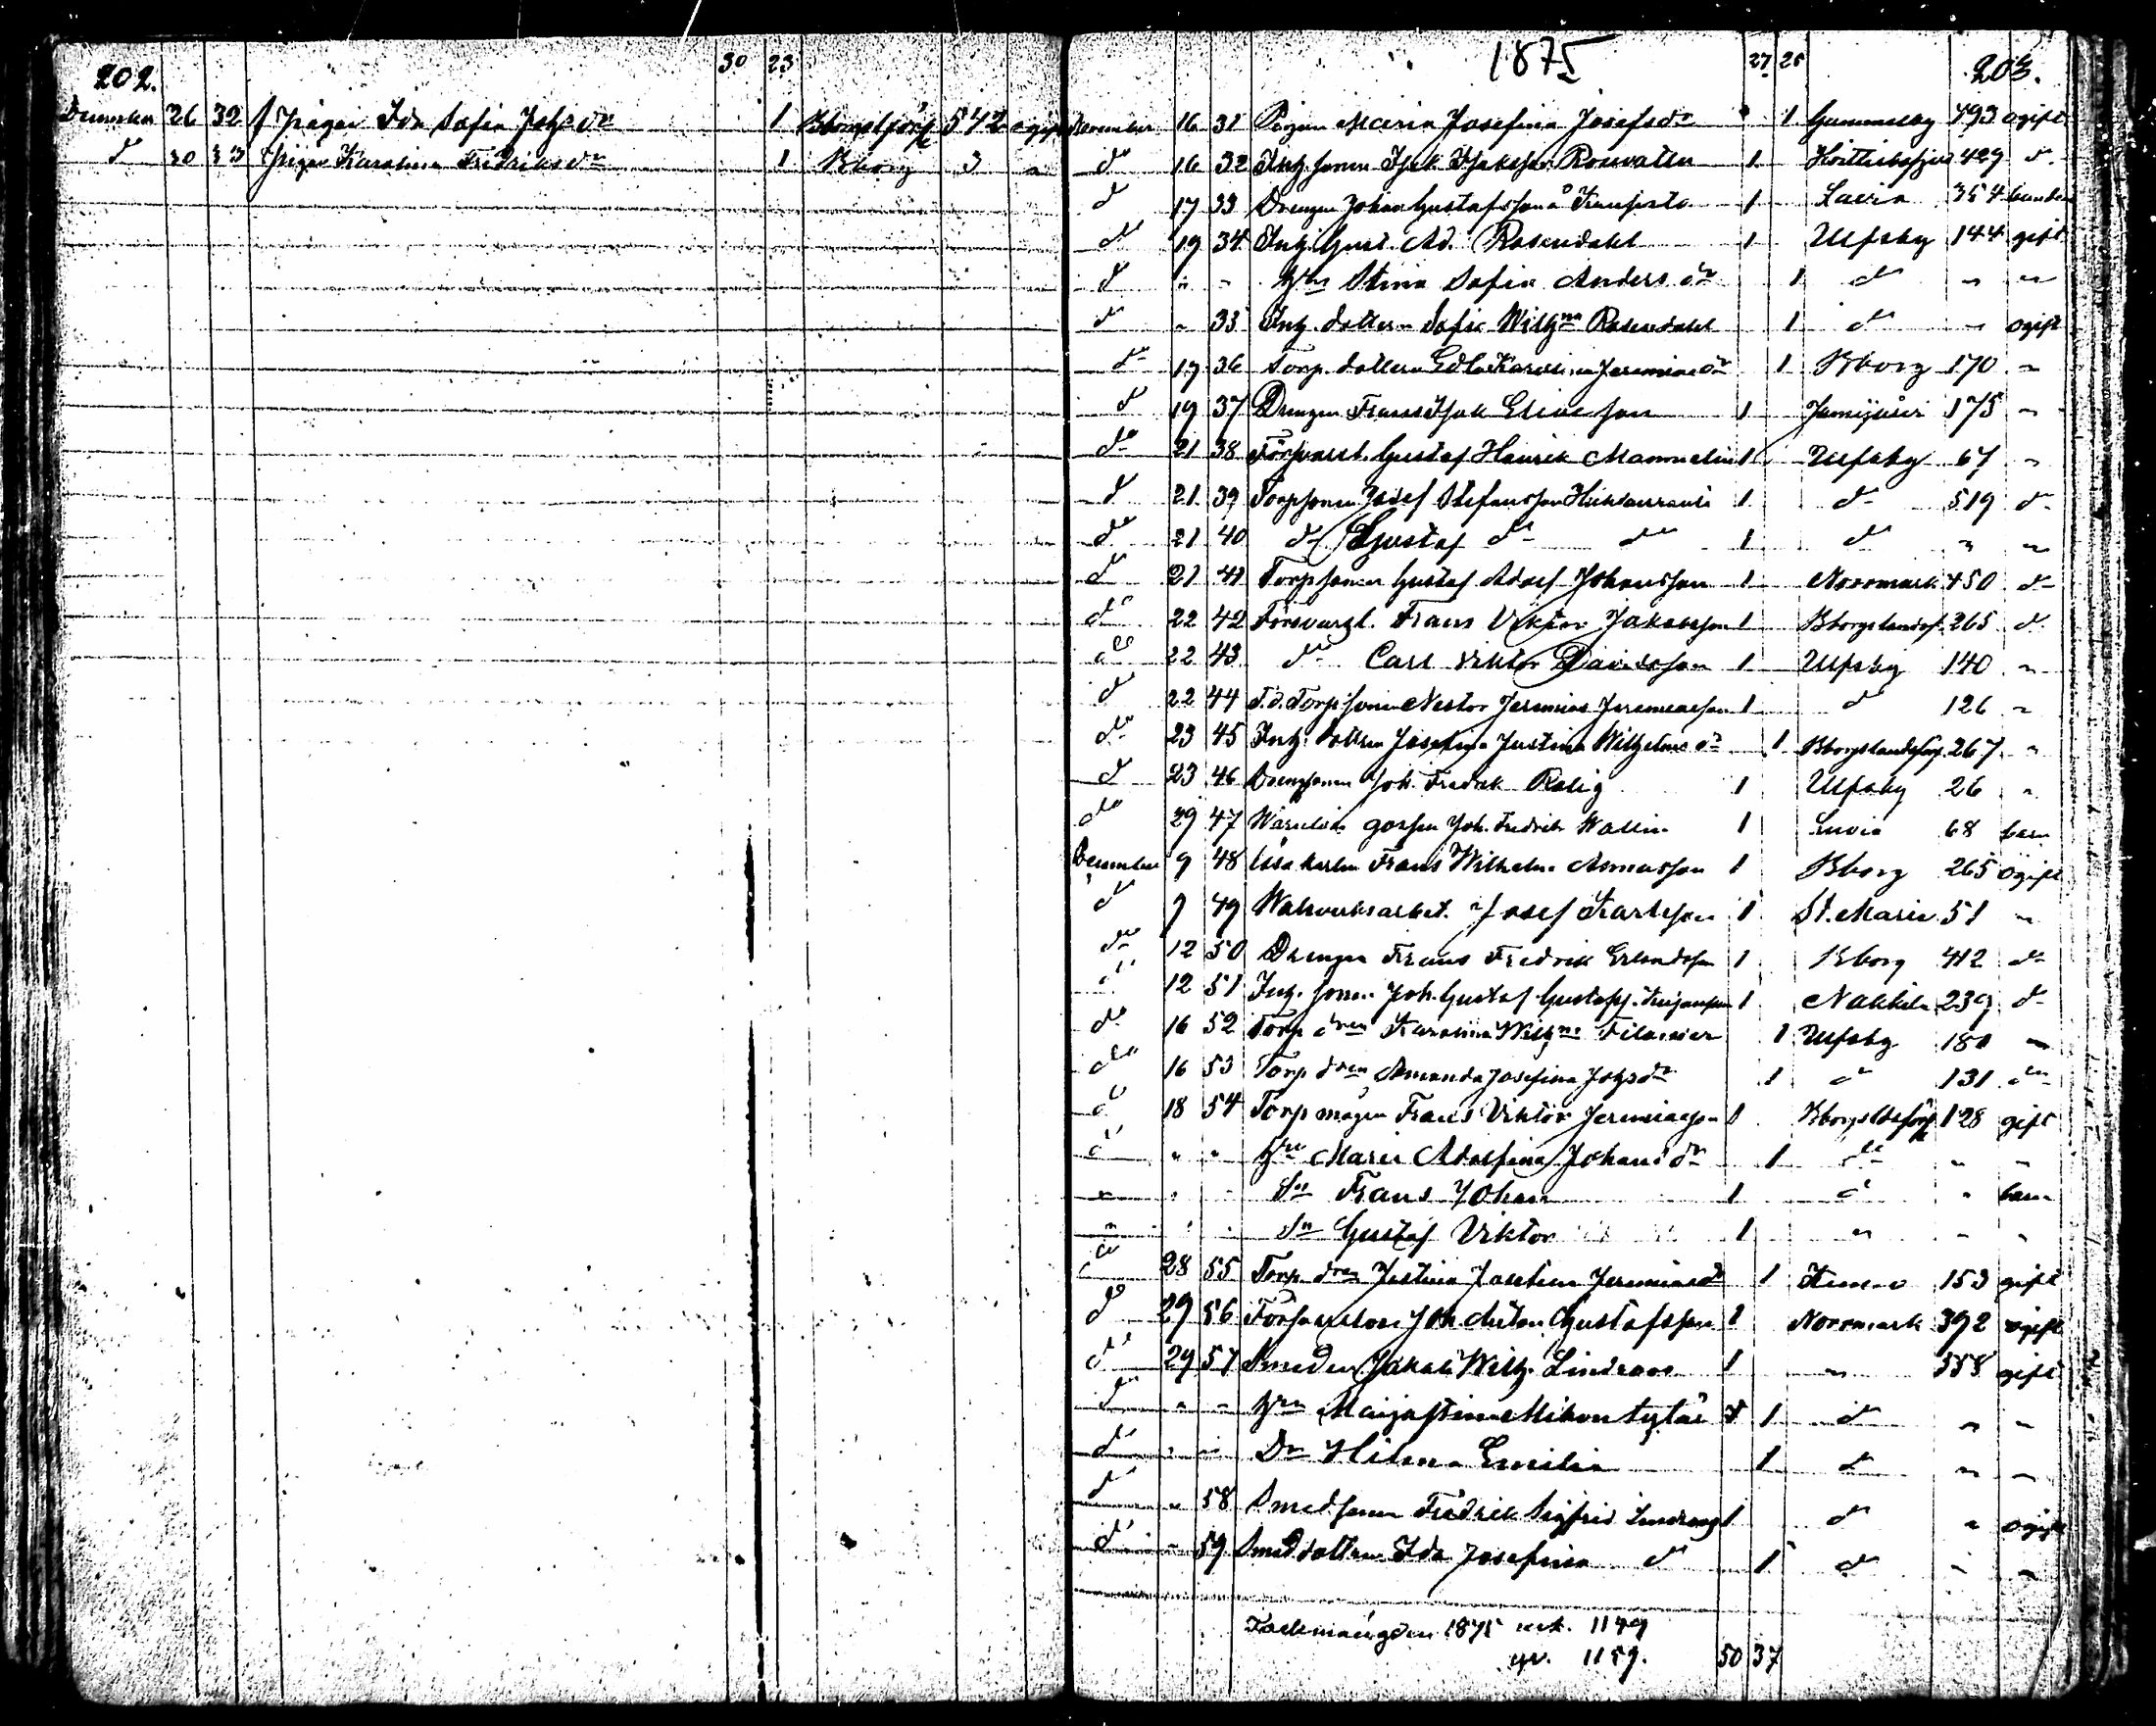 202.
30 23
December 26 32 Pigan Ida Sofia Johsdr 1 542 ogift
d 30 33 Pigan Karolina Fredriksdr 1 Bborg 3 "
1875
27 25 203.
November 16 31 Pigan Maria Josefina Josefsdr 1 493 ogift
do 16 32 Inh. sonen Isak Isaksson 1 429 do
do 17 33 Drengen Johan Gustafsson 1 Lavia 354
do 19 34 Inh. Gust. Ad. Rosendahl 1 Ulfsby 144 gift
do " " Hu Stina Sofia Andersdr 1 do " "
do " 35 Inh. dottern Sofia Wilhna Rosendahl 1 do " ogift
do 19 36 Torp. dottern Edla Karolina Jeremiasdr 1 Bborg 170 "
do 19 37 Drengen Frans Isak Eliasson 1 Jämijärvi 175 "
do 21 38 Försvarsl. Gustaf Henrik Mammelin 1 Ulfsby 67 "
do 21 39 Torpsonen Josef Stefansson 1 do 519 do
do 21 40 do Gustaf do do 1 do " "
do 21 41 Torpsonen Gustaf Adolf Johansson 1 Norrmark 450 do
do 22 42 Försvarsl. Frans Viktor Jakobsson 1 265 do
do 22 43 do Carl Viktor Davidsson 1 Ulfsby 140 "
do 22 44 F.d. Torpsonen Nestor Jeremias Jeremiasson 1 do 126 "
do 23 45 Inh. dottren Josefina Justina Wilhelmsdr 1 Bborgslandsförs. 267 "
do 23 46 Drengsonen Joh. Fredrik Rolig 1 Ulfsby 26 "
do 29 47 Wärnlösa gossen Joh. Fredrik Wallin 1 Luvia 68 barn
December 9 48 Frans Wilhelm 1 Bborg 265 ogift
do 9 49 Josef Karlsson 1 St. Marie 51 "
do 12 50 Drengen Frans Fredrik Erlandsson 1 Bborg 412 do
do 12 51 Inh. sonen Joh. Gustaf Gustafss. 1 Nakkila 239 do
do 16 52 Torp dren Karolina Wilhna 1 Ulfsby 180 "
do 16 53 Torp dren Amanda Josefina Johsdr 1 do 131 do
do 18 54 Torpmågen Frans Viktor Jeremiasson 1 128 gift
do " " Hu Maria Adolfina Johansdr 1 do " "
" " " Sn Frans Johan 1 do " barn
" " " Sn Gustaf Viktor 1 " " "
do 28 55 Torp. dren Justina Josefina Jeremiasdr 1 153 gift
do 29 56 Joh Anton Gustafsson 1 Norrmark 392 ogift
do 29 57 Smeden Jakob Wilh. Lindroos 1 " 358 gift
do " " Hun Maijastina Mikontytär 1 do " "
do " " Dr Hilma Emilia 1 do " "
do " 58 Smedsonen Fredrik Sigfrid Lindroos 1 do " ogift
do " 59 Smeddottren Ida Josefina do 1 do " "
Folkmängden 1875 mk. 1149
qv. 1159. 50 37